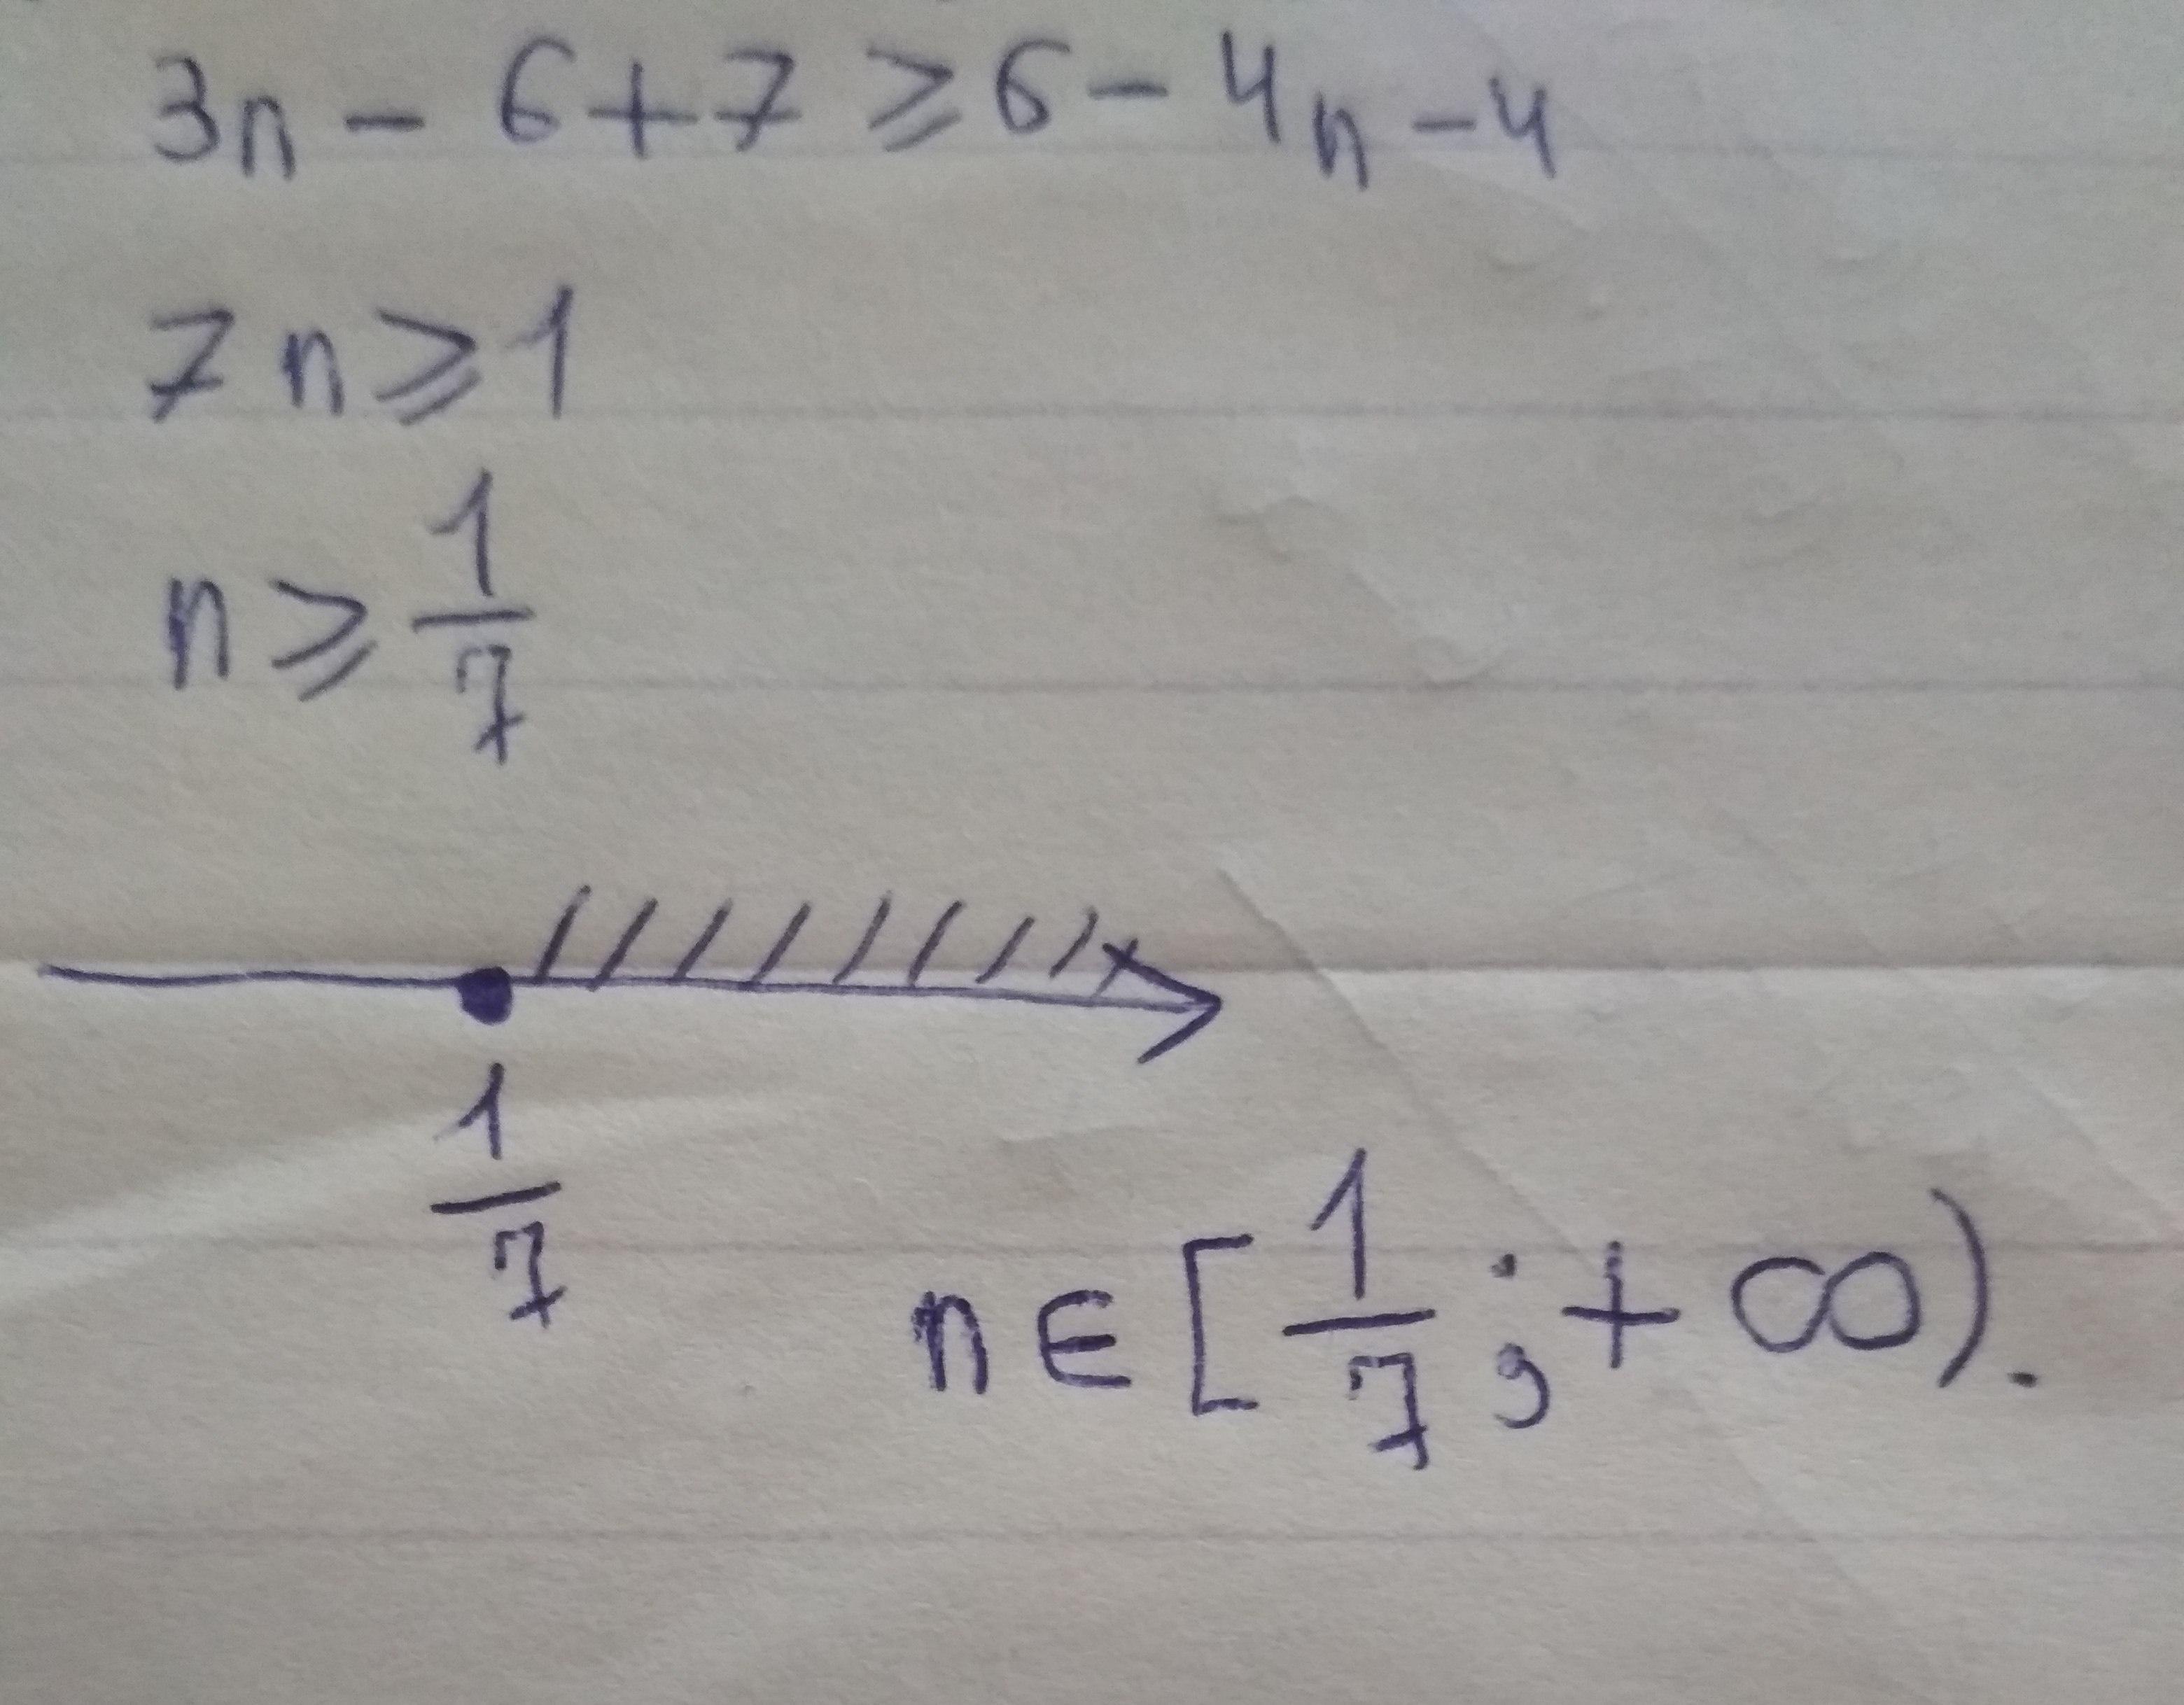 3n - 6 + 7 ≥ 6 - 4n - 4
7n ≥ 1
n ≥ 1/7
1/7
n ∈ [1/7; +∞).